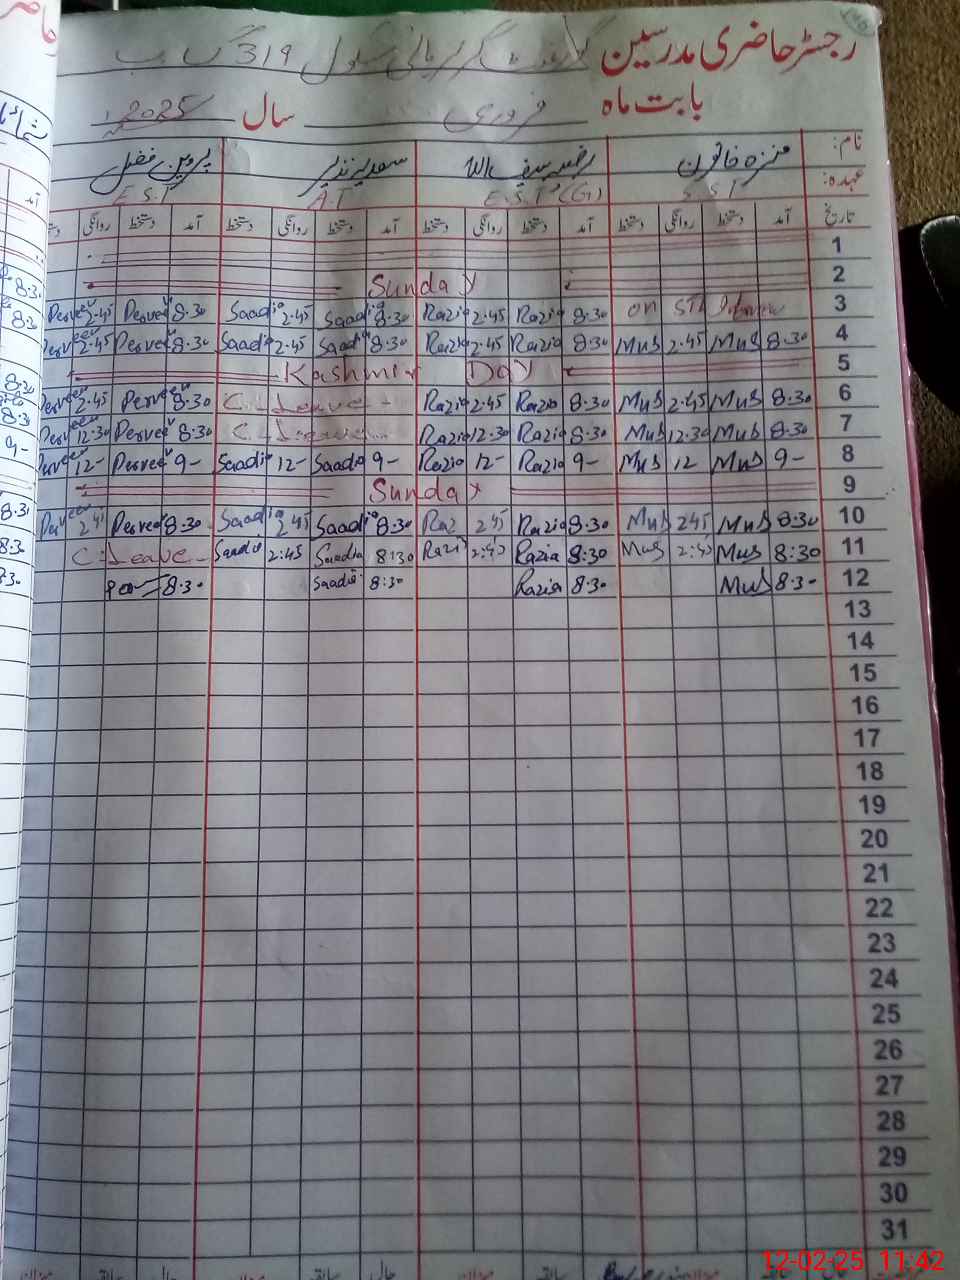 رجسٹر حاضری مدرسین گورنمنٹ گرلز ہائی سکول 319 گ ب
بابت ماہ فروری سال 2025
نام: منزہ خاتون رضیہ سیف اللہ سعدیہ نذیر پروین فضل
عہدہ: S.S.T E.S.T (G) A.T E.S.T
تاریخ آمد دستخط روانگی دستخط آمد دستخط روانگی دستخط آمد دستخط روانگی دستخط آمد دستخط روانگی
1
2 Sunday
Perveen 2.45 Perveen 8.30 Saadia 2.45 Saadia 8.30 Razia 2.45 Razia 8.30 on 3
Perveen 2.45 Perveen 8.30 Saadia 2.45 Saadia 8.30 Razia 2.45 Razia 8.30 MuS 2.45 MuS 8.30 4
Kashmir Day 5
Perveen 2.45 Perveen 8.30 C-Leave Razia 2.45 Razia 8.30 MuS 2.45 MuS 8.30 6
Perveen 12.30 Perveen 8.30 C-Leave Razia 12.30 Razia 8.30 MuS 12.30 MuS 8.30 7
Perveen 12- Perveen 9- Saadia 12- Saadia 9- Razia 12- Razia 9- MuS 12 MuS 9- 8
Sunday 9
Perveen 2.45 Perveen 8.30 Saadia 2.45 Saadia 8.30 Raz 2.45 Razia 8.30 MuS 2.45 MuS 8.30 10
C-Leave Saadia 2:45 Saadia 8:30 Razia 2:45 Razia 8:30 MuS 2:45 MuS 8:30 11
8.30 Saadia 8:30 Razia 8.30 MuS 8.30 12
13
14
15
16
17
18
19
20
21
22
23
24
25
26
27
28
29
30
31
میزان سابقہ حال میزان سابقہ حال
12-02-25 11:42